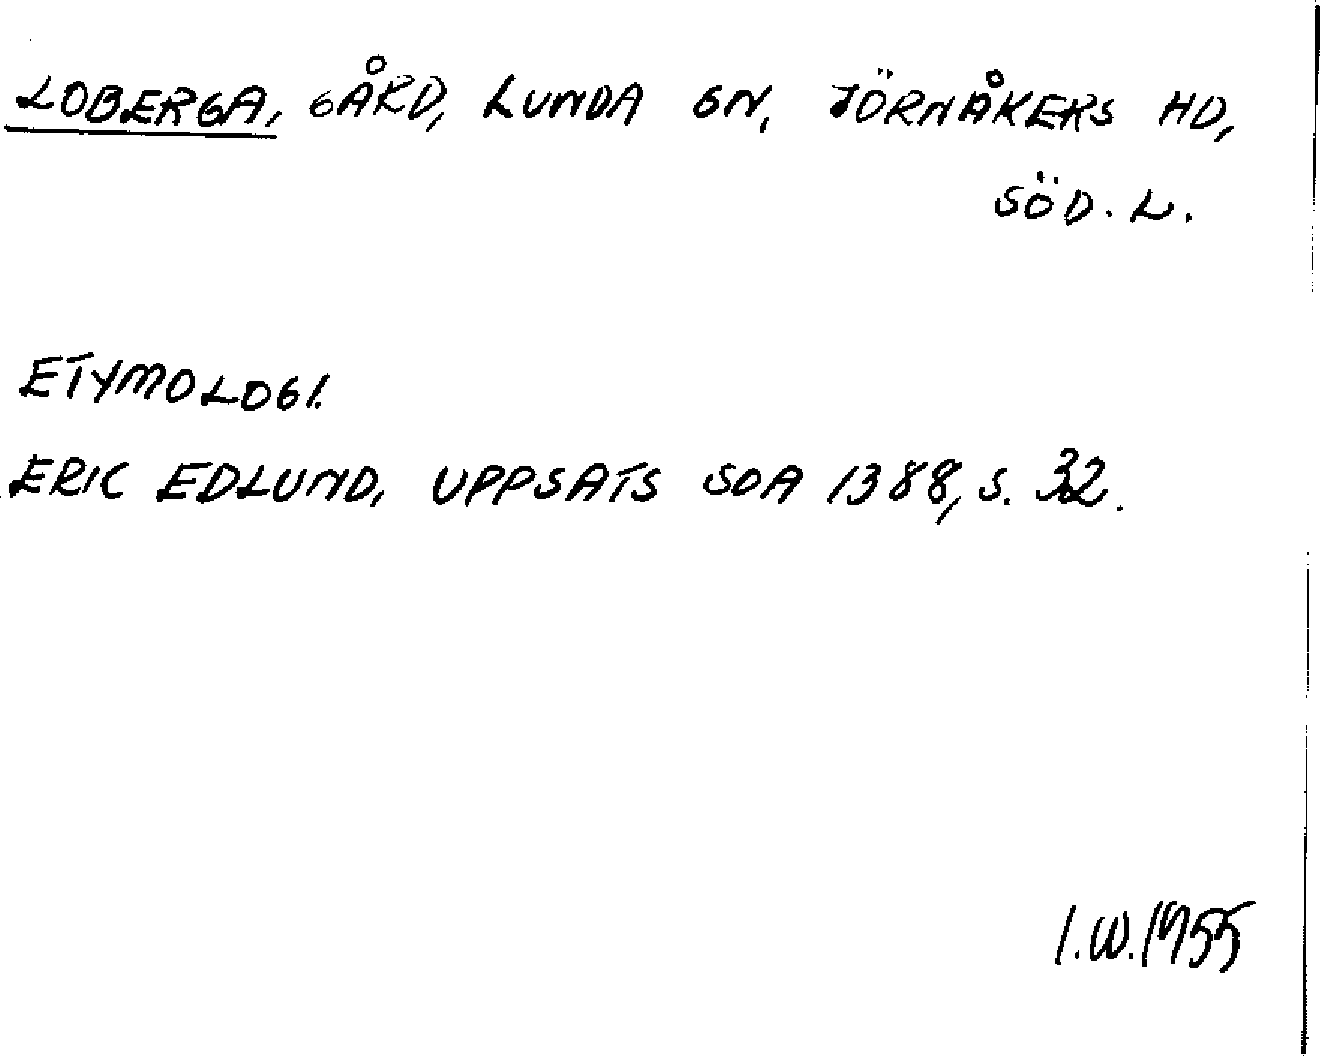 LOBERGA, GÅRD, LUNDA SN, JÖRNÅKERS HD,
SÖD. L.
ETYMOLOGI.
ERIC EDLUND, UPPSATS SOA 1388, S. 32.
I.W.1955